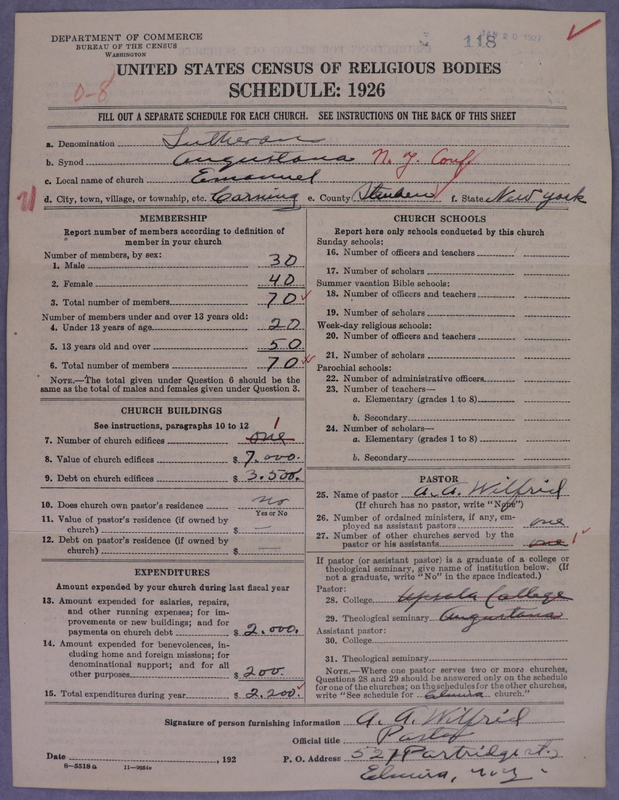 DEPARTMENT OF COMMERCE
BUREAU OF THE CENSUS
WASHINGTON
118
JAN 20 1927
UNITED STATES CENSUS OF RELIGIOUS BODIES
SCHEDULE: 1926
0-8
FILL OUT A SEPARATE SCHEDULE FOR EACH CHURCH. SEE INSTRUCTIONS ON THE BACK OF THIS SHEET
a. Denomination Lutheran
b. Synod Augustana N. Y. Conf
c. Local name of church Emanuel
d. City, town, village, or township, etc. Corning e. County Steuben f. State New York
MEMBERSHIP
Report number of members according to definition of
member in your church
Number of members, by sex:
1. Male 30
2. Female 40
3. Total number of members 70
Number of members under and over 13 years old:
4. Under 13 years of age 20
5. 13 years old and over 50
6. Total number of members 70
NOTE.—The total given under Question 6 should be the
same as the total of males and females given under Question 3.
CHURCH BUILDINGS
See instructions, paragraphs 10 to 12
7. Number of church edifices one 1
8. Value of church edifices $ 7.000.
9. Debt on church edifices $ 3.500.
10. Does church own pastor's residence no
Yes or No
11. Value of pastor's residence (if owned by
church) $ —
12. Debt on pastor's residence (if owned by
church) $ —
EXPENDITURES
Amount expended by your church during last fiscal year
13. Amount expended for salaries, repairs,
and other running expenses; for im-
provements or new buildings; and for
payments on church debt $ 2.000.
14. Amount expended for benevolences, in-
cluding home and foreign missions; for
denominational support; and for all
other purposes $ 200.
15. Total expenditures during year $ 2.200.
CHURCH SCHOOLS
Report here only schools conducted by this church
Sunday schools:
16. Number of officers and teachers
17. Number of scholars
Summer vacation Bible schools:
18. Number of officers and teachers
19. Number of scholars
Week-day religious schools:
20. Number of officers and teachers
21. Number of scholars
Parochial schools:
22. Number of administrative officers
23. Number of teachers—
a. Elementary (grades 1 to 8)
b. Secondary
24. Number of scholars—
a. Elementary (grades 1 to 8)
b. Secondary
PASTOR
25. Name of pastor A. A. Wilfrid
(If church has no pastor, write "None")
26. Number of ordained ministers, if any, em-
ployed as assistant pastors one
27. Number of other churches served by the
pastor or his assistants one 1
If pastor (or assistant pastor) is a graduate of a college or
theological seminary, give name of institution below. (If
not a graduate, write "No" in the space indicated.)
Pastor:
28. College Upsala College
29. Theological seminary Augustana
Assistant pastor:
30. College
31. Theological seminary
NOTE.—Where one pastor serves two or more churches,
Questions 28 and 29 should be answered only on the schedule
for one of the churches; on the schedules for the other churches,
write "See schedule for Elmira church."
Signature of person furnishing information A. A. Wilfrid
Official title Pastor
Date , 192 P. O. Address 527 Partridge st.
8—5518 a Elmira, N.Y.